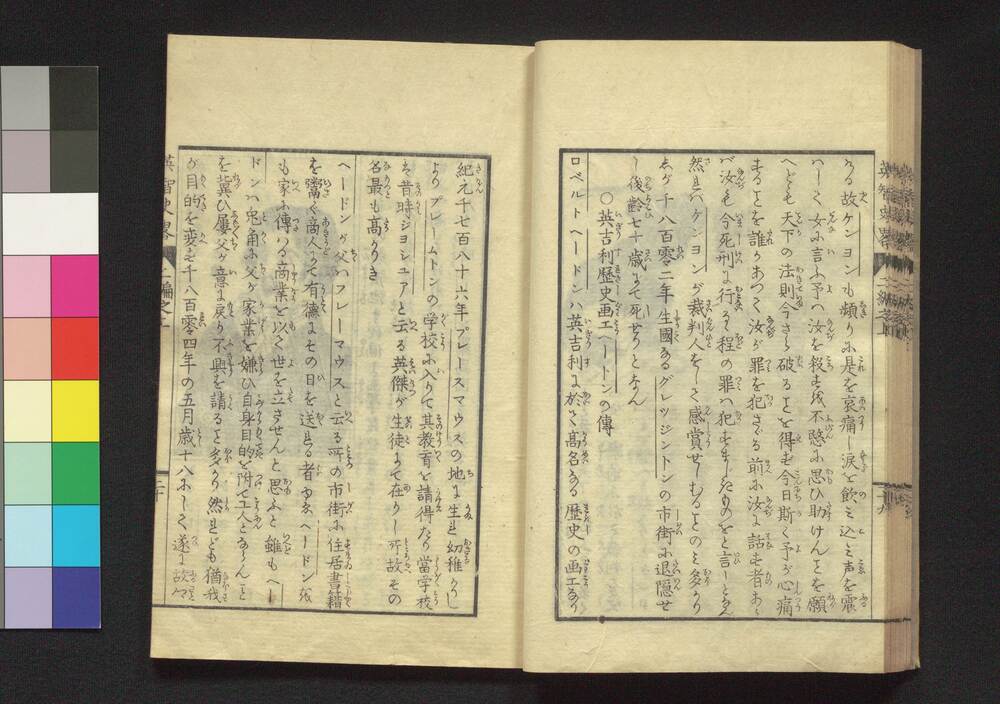 なる故ケンヨンも頻りに是を哀痛し涙を飲み込み声を震
ハして女に言ふ予ハ汝を殺すを不愍に思ひ助けんことを願
へども天下の法則今さら破ることを得ず今日斯く予が心痛
することを誰かあつて汝が罪を犯さゞる前に汝に話す者あら
バ汝も今死刑に行るゝ程の罪ハ犯すまじきものをと言しとなん
然れバケンヨンが裁判人をして感賞せしむること のミ多かり
しが千八百零二年生國なるグレッジントンの市街に退隠せ
し後齢七十歳にて死せりとなん
○英吉利歴史画工ヘードンの傳
ロベルトヘードンハ英吉利に於て高名なる歴史の画工なり
紀元千七百八十六年プレースマウスの地に生れ幼稚かりし
より プレームトンの学校に入りて其教育を請得たり当学校
は昔時ジヨシユアと云る英傑が生徒にて在りし所故その
名最も高かりき
ヘードンが父ハフレーマウスと云る所の市街に住居書籍
を鬻ぐ商人にて有徳にその日を送れる者ゆゑヘードンを
も家に傳ハる商業を以て世を立させんと思ふと雖もヘー
ドンハ兎角に父が家業を嫌ひ自身目的を附て工人とならんこと
を冀ひ屡父が意に戻り不興を請ることも多かり然れども猶我
が目的を変ぜず千八百零四年の五月歳十八にして遂に故々